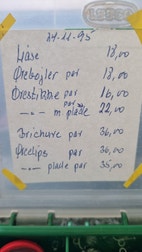 24-11-95
Nåse 18,00
Ørebøjler par 18,00
Ørestikke par 16,00
—"— m plade par 22,00
Brichure par 36,00
Øreclips par 36,00
—"— plade par 36,00